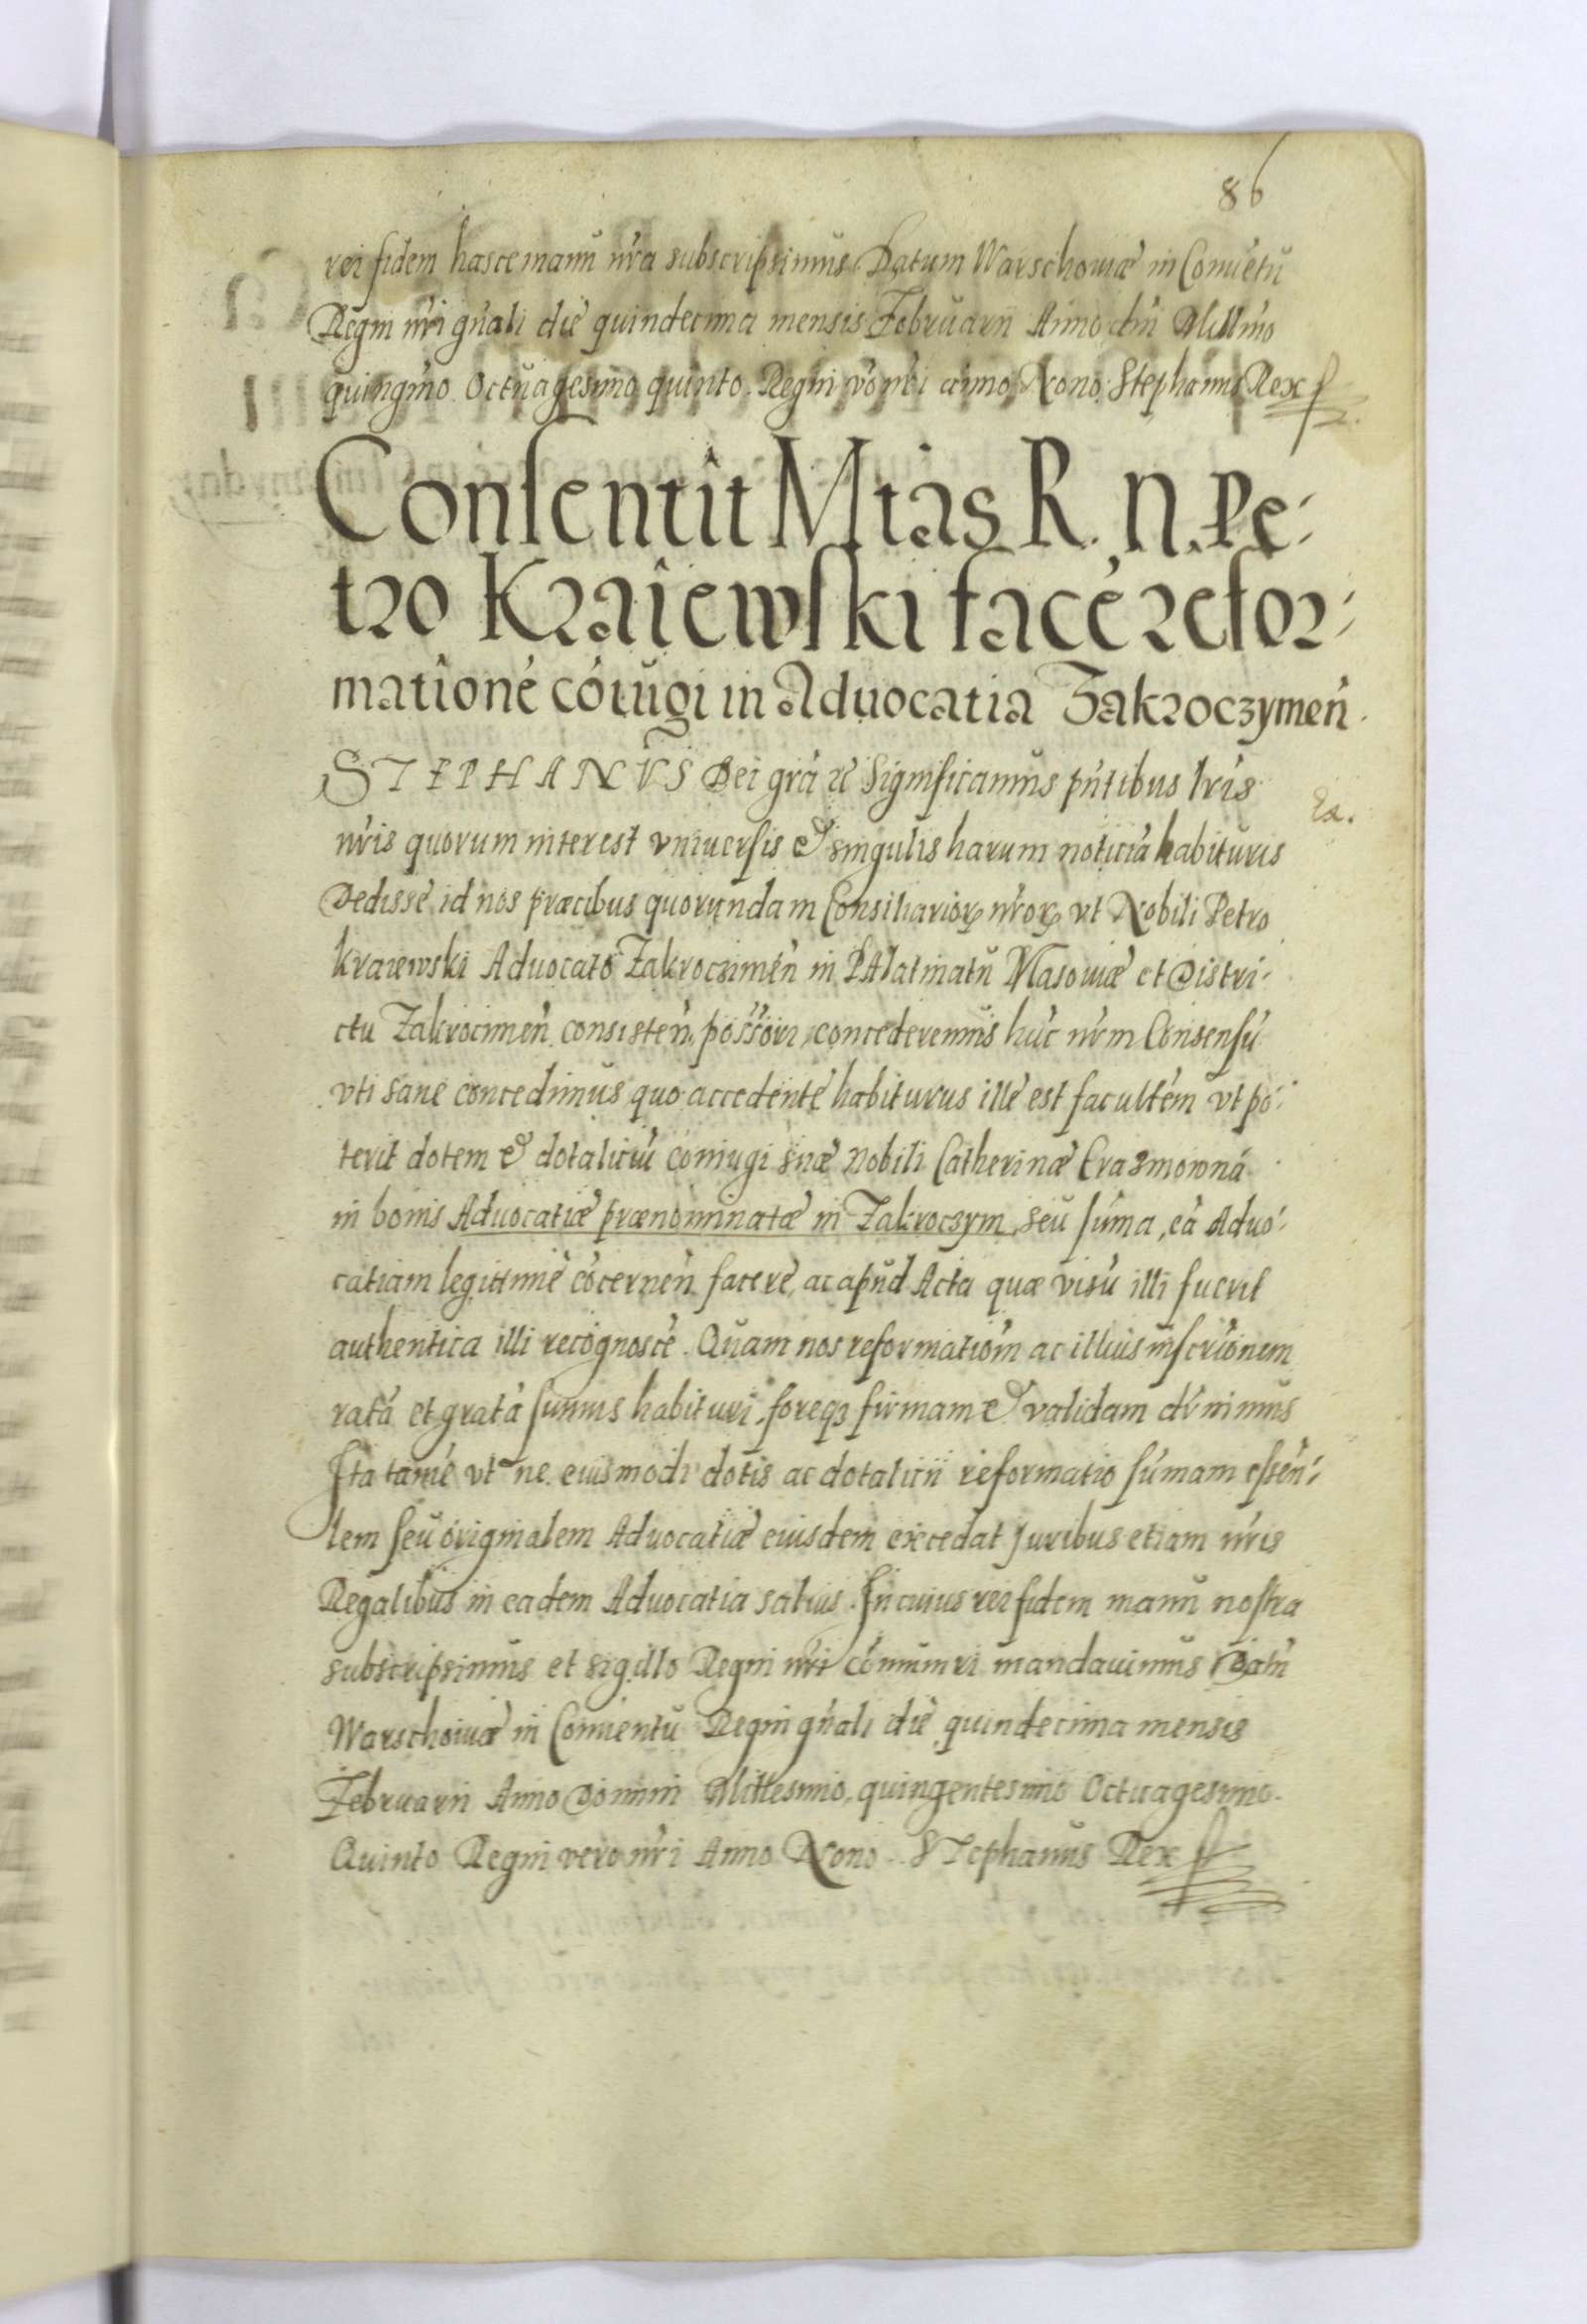 86
rei fidem hasce manu nr̃a subscripsimus. Datum Warschoviæ in Conuẽtu
Regni nr̃i gñali die quindecima mensis Februarii Anno dñi Millm̃o
quingm̃o Octuagesimo quinto. Regni vo nr̃i anno Nono Stephanus Rex
Consentit Mtas R. N. Pe-
tro Kraiewski facẽ refor-
mationẽ cõiugi in Aduocatia Zakroczymeñ.
STEPHANVS Dei grã zc Significamus pñtibus lr̃is
Ex.
nr̃is quorum interest vniuersis et singulis harum noticiã habituris
Dedisse id nos præcibus quorundam Consiliarioꝝ nr̃oꝝ vt Nobili Petro
Kraiewski Aduocato Zakroczimeñ in PAlatinatu Masouiæ et Distri-
ctu Zakrocimeñ consisteñ. possori, concederemus huc nr̃m Consensũ
vti sane concedimus quo accedente habiturus ille est facultẽm vt po-
terit dotem et dotaliciũ coniugi suæ Nobili Catherinæ Erasmownã
in bonis Aduocatiæ prænominatæ in Zakroczym, seu sum̃a, eã Aduo-
catiam legittimè cõcerneñ facere, ac apud Acta quæ visũ illi fueril
authentica illi recognoscẽ. Quam nos reformatiom̃ ac illius inscriõnem
ratã et gratã sumus habituri, foreqꝫ firmam et validam dr̃nimus
Ita tamẽ vt ne eiusmodi dotis ac dotalitii reformatio sum̃am essen-
lem seu originalem Aduocatiæ eiusdem excedat Juribus etiam nr̃is
Regalibus in eadem Aduocatia saluis. In cuius rei fidem manu nostra
subscripsimus et sigillo Regni nr̃i cõmuniri mandauimus Datũ
Warschoviæ in Conuentu Regni gñali die quindecima mensis
Februarii Anno Domini Millesimo, quingentesimo Octuagesimo
Quinto Regni vero nr̃i Anno Nono. STephanus Rex